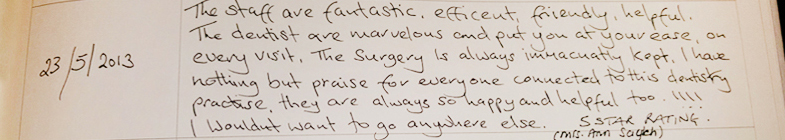 The staff are fantastic, efficent, friendly, helpful.
The dentist are marvelous and put you at your ease, on
every visit. The Surgery Is always immacuatly Kept. I have
23/5/2013
nothing but praise for everyone connected to this dentistry
practise, they are always so happy and helpful too. !!!!
I Wouldnt want to go anywhere else. 5 STAR RATING.
(mrs. Ann